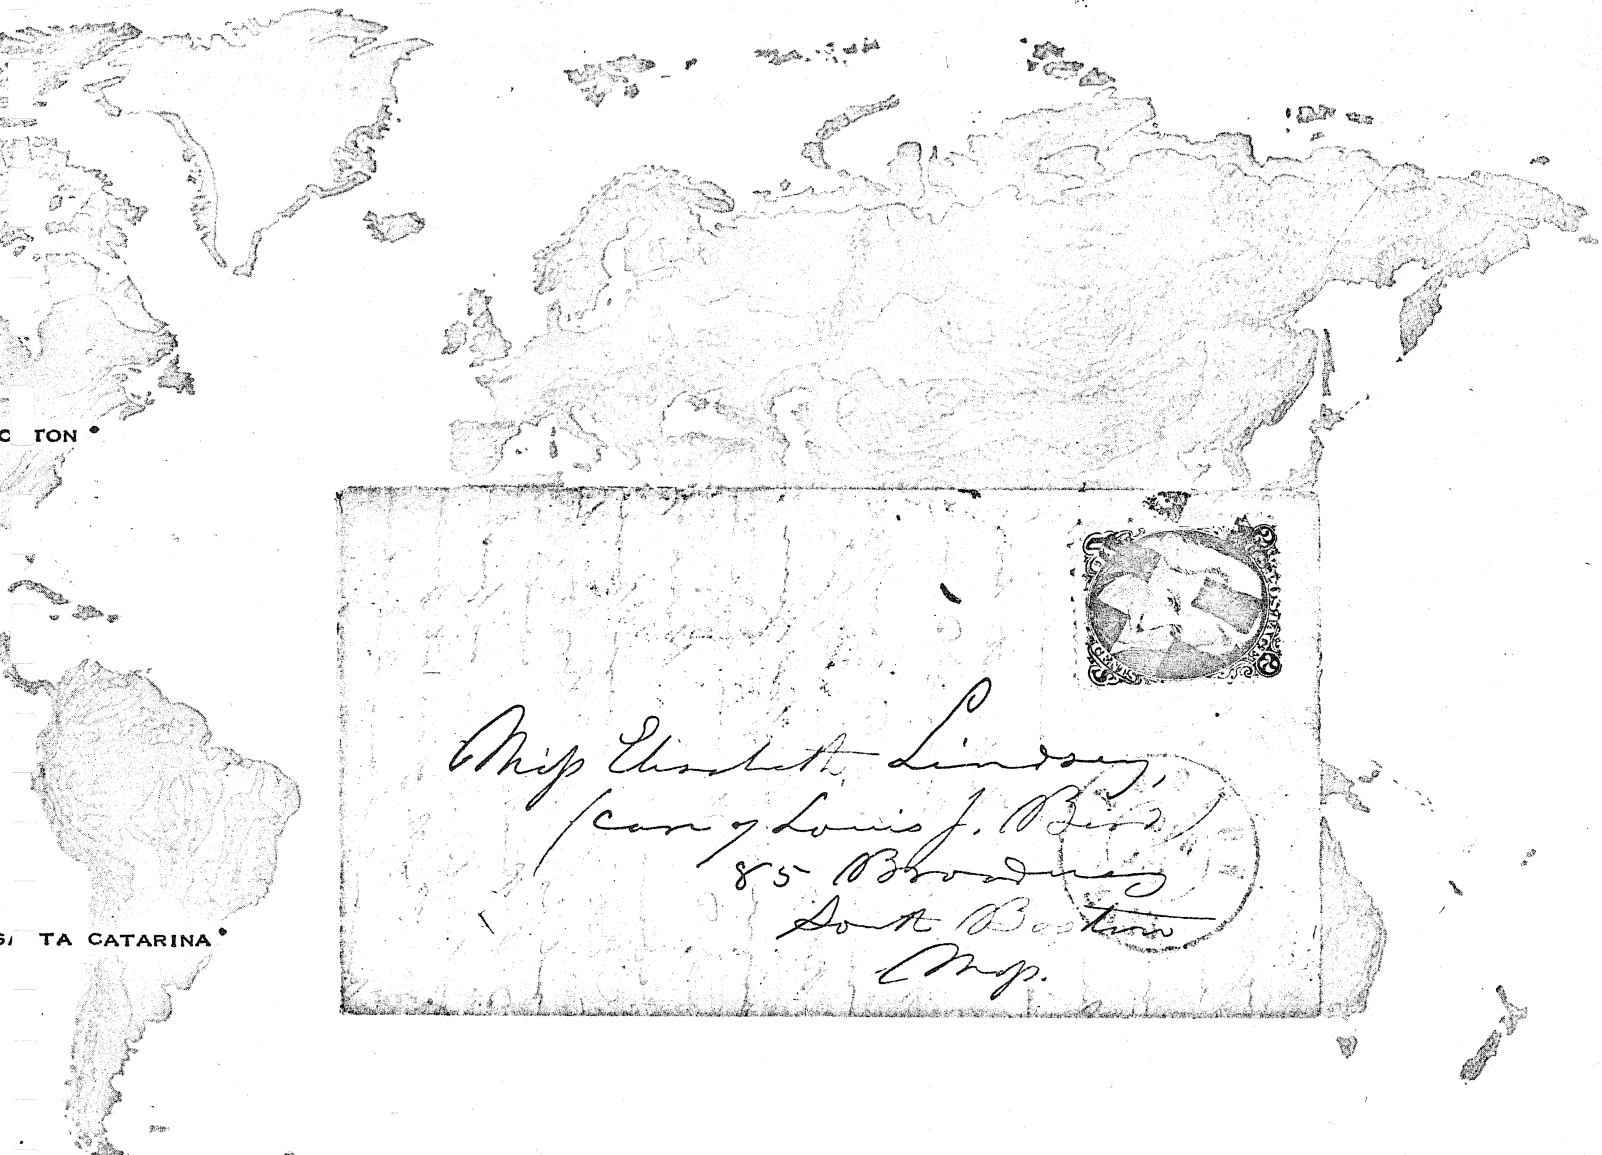 C TON
TA CATARINA
Miss Elisabeth Lindsey,
(care of Louis J. Bird)
85 Broadway
South Boston
Mass.